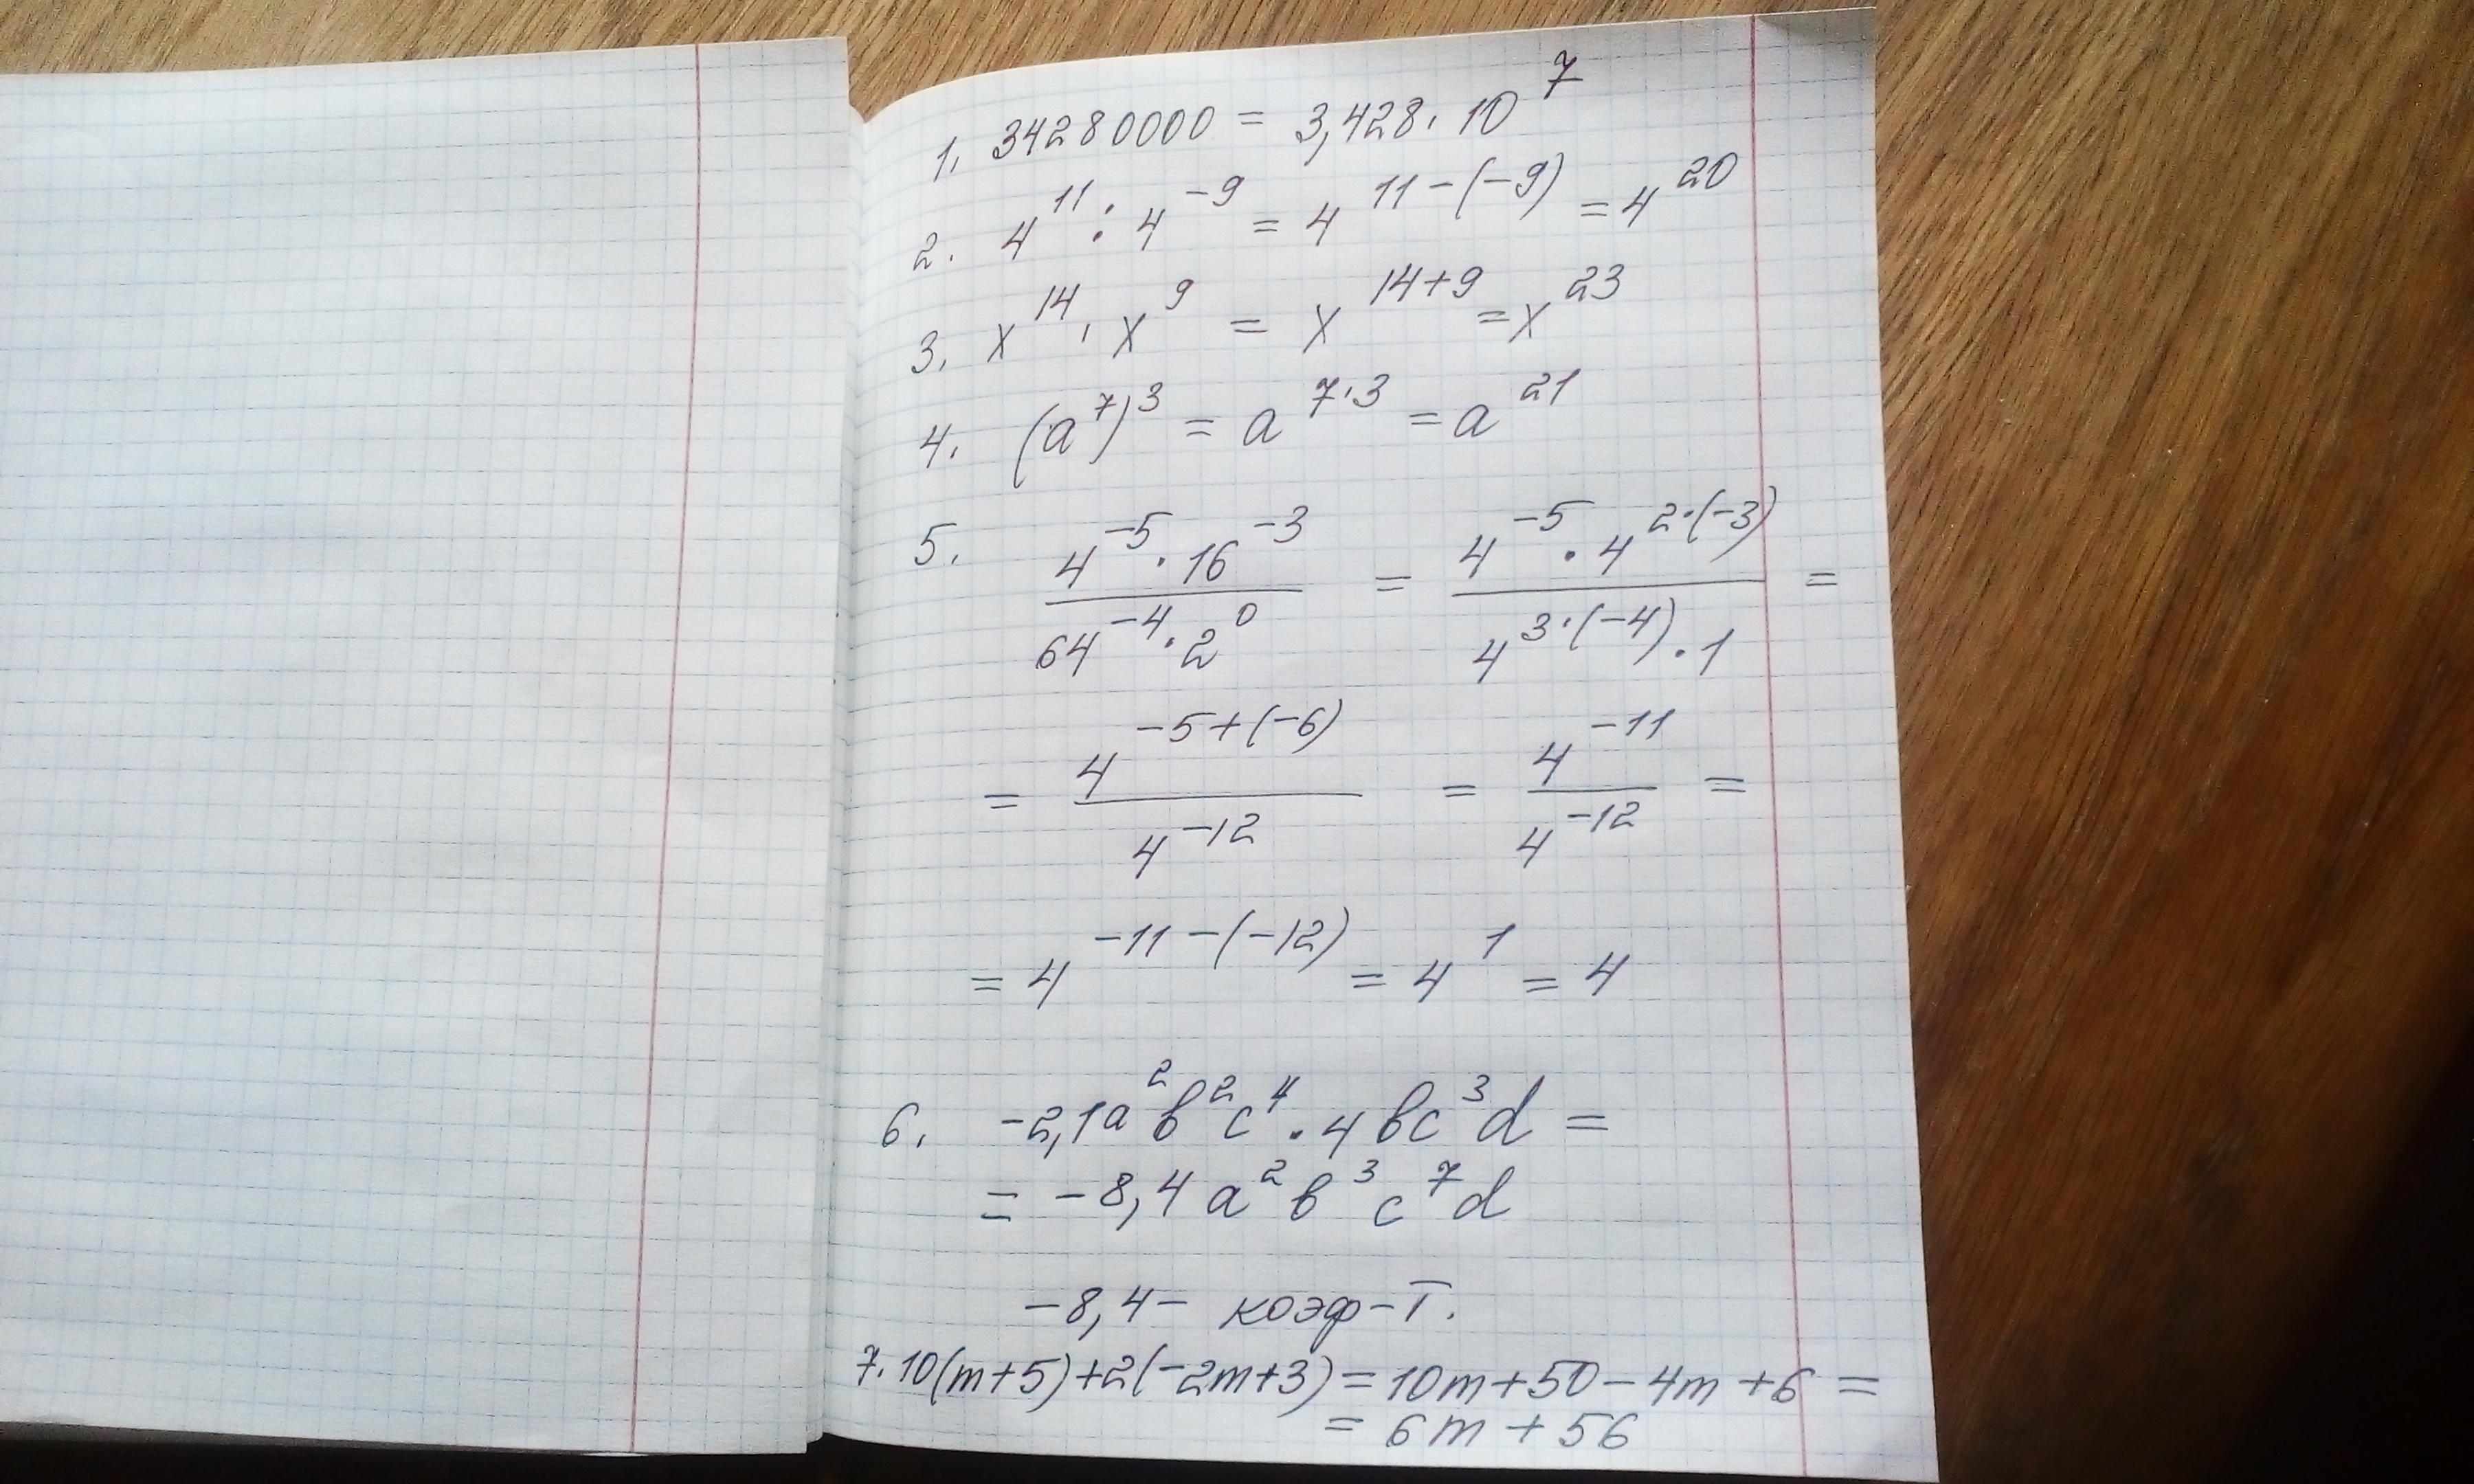 1. 34280000 = 3,428 · 10⁷
2. 4¹¹ : 4⁻⁹ = 4¹¹⁻⁽⁻⁹⁾ = 4²⁰
3. x¹⁴ · x⁹ = x¹⁴⁺⁹ = x²³
4. (a⁷)³ = a^(7·3) = a²¹
5. (4⁻⁵ · 16⁻³)/(64⁻⁴ · 2⁰) = (4⁻⁵ · 4^(2·(-3)))/(4^(3·(-4)) · 1) =
= 4^(-5+(-6))/4⁻¹² = 4⁻¹¹/4⁻¹² =
= 4^(-11-(-12)) = 4¹ = 4
6. -2,1a²b²c⁴ · 4bc³d =
= -8,4a²b³c⁷d
-8,4 - коэф-т.
7. 10(m+5)+2(-2m+3) = 10m+50-4m+6 =
= 6m+56